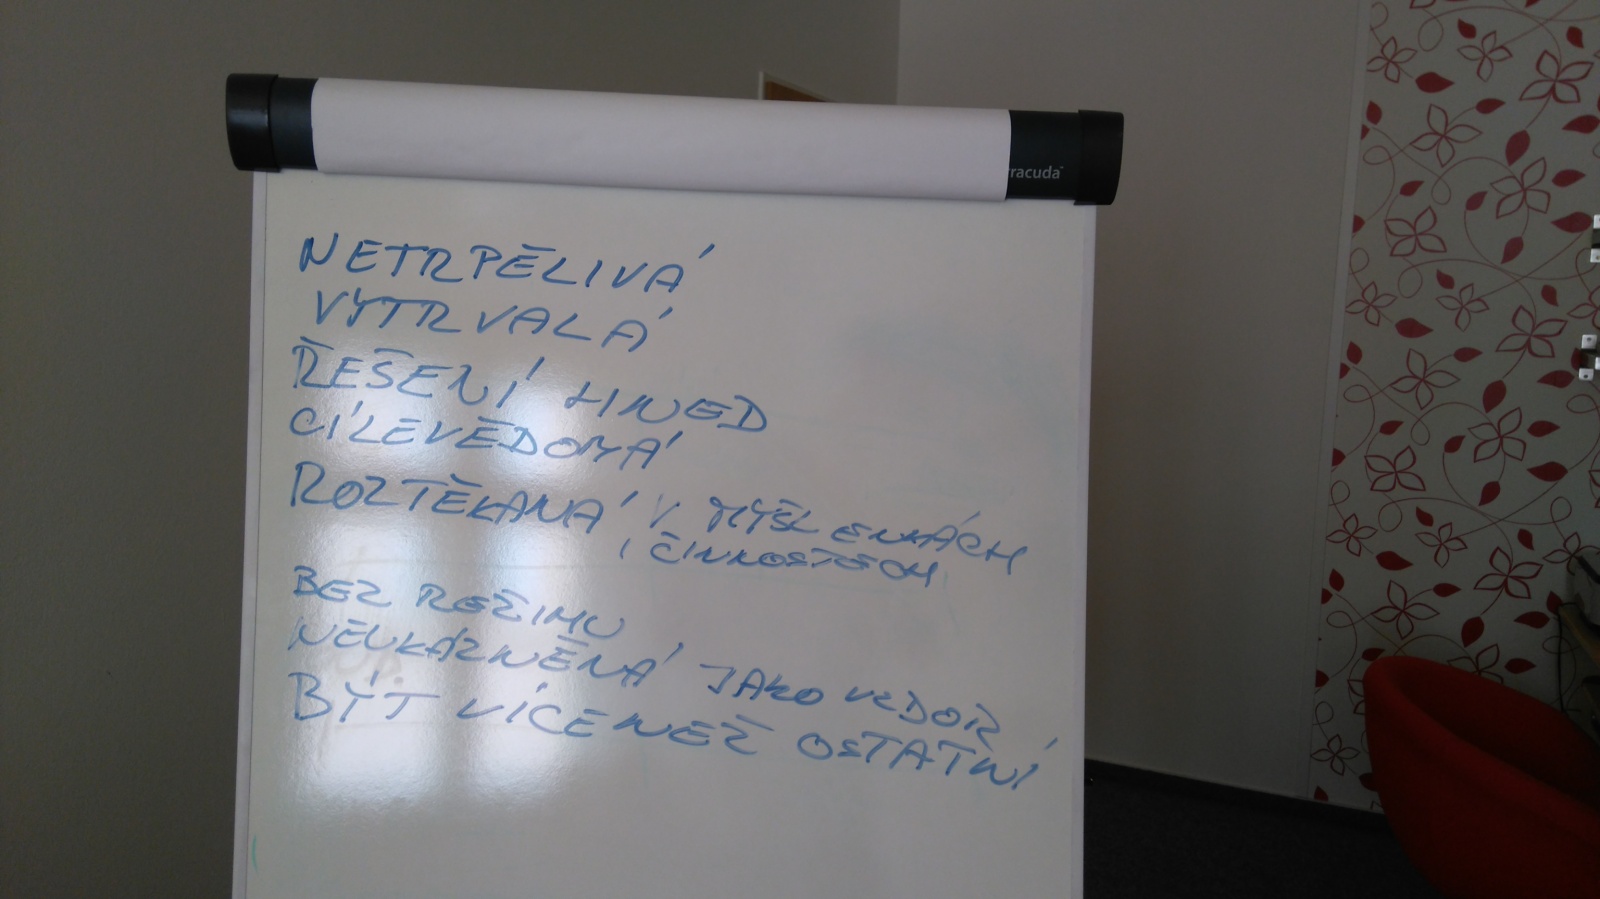 racuda
NETRPĚLIVÁ
VYTRVALÁ
ŘEŠENÍ HNED
CÍLEVĚDOMÁ
ROZTĚKANÁ V MYŠLENKÁCH
I ČINNOSTECH
BEZ REŽIMU
NEUKÁZNĚNÁ JAKO VZDOR
BÝT VÍCE NEŽ OSTATNÍ